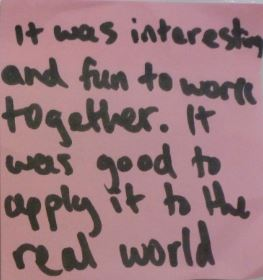 It was interesting
and fun to work
together. It
was good to
apply it to the
real world